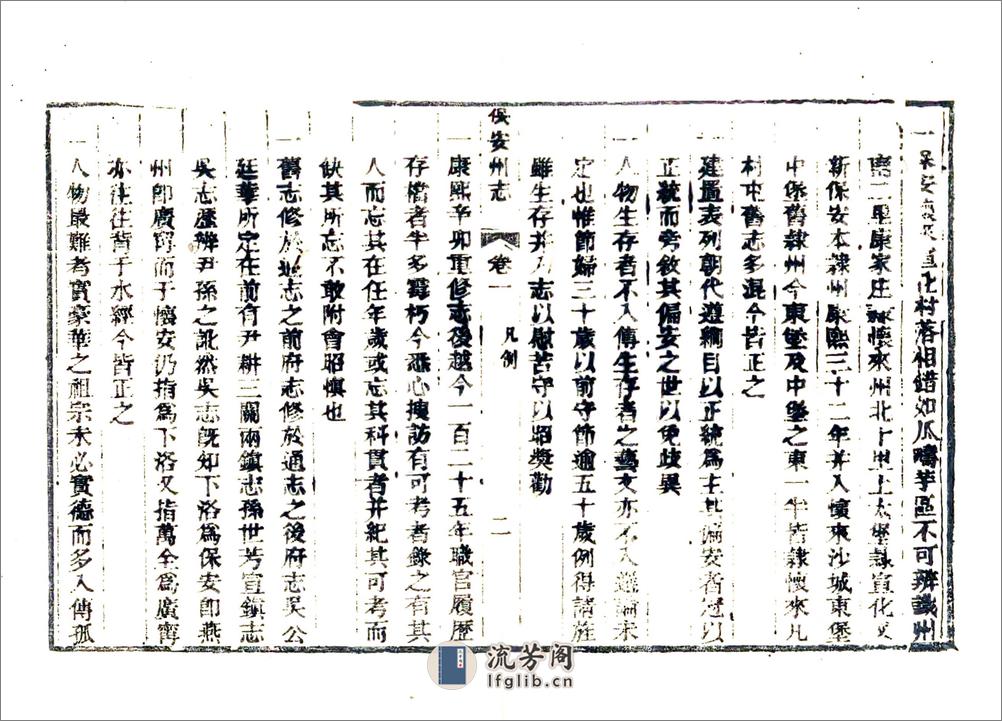 一保安懷來宣化村落相錯如瓜疇芋區不可辨識州
二里康家庄隸懷來州北十里上太堡隸宣化又
新保安本隸州康熙三十二年并入懷來沙城東堡
中堡舊隸州今東堡及中堡之東一半皆隸懷來凡
村屯舊志多混今皆正之
建置表列朝代遵綱目以正統為主其偏安者冠以
正統而旁敘其偏安之世以免歧異
一人物生存者不入傳生存者之藝文亦不入選論未
定也惟節婦三十歲以前守節逾五十歲例得請旌
雖生存并入志以慰苦守以昭獎勸
保安州志
卷一
凡例
二
一康熙辛卯重修志後越今一百二十五年職官履歷
存檔者半多霉朽今悉心搜訪有可考者錄之有其
人而忘其在任年歲或忘其科貫者并紀其可考而
缺其所忘不敢附會昭慎也
一舊志修於通志之前府志修於通志之後府志吳公
廷華所定在前有尹耕三關兩鎮志孫世芳宣鎮志
吳志歷辨尹孫之訛然吳志既知下洛為保安即燕
州即廣甯而于懷安仍指為下洛又指萬全為廣甯
亦往往背于水經今皆正之
一人物最難考實豪華之祖宗未必實德而多入傳孤
流芳阁
lfglib.cn